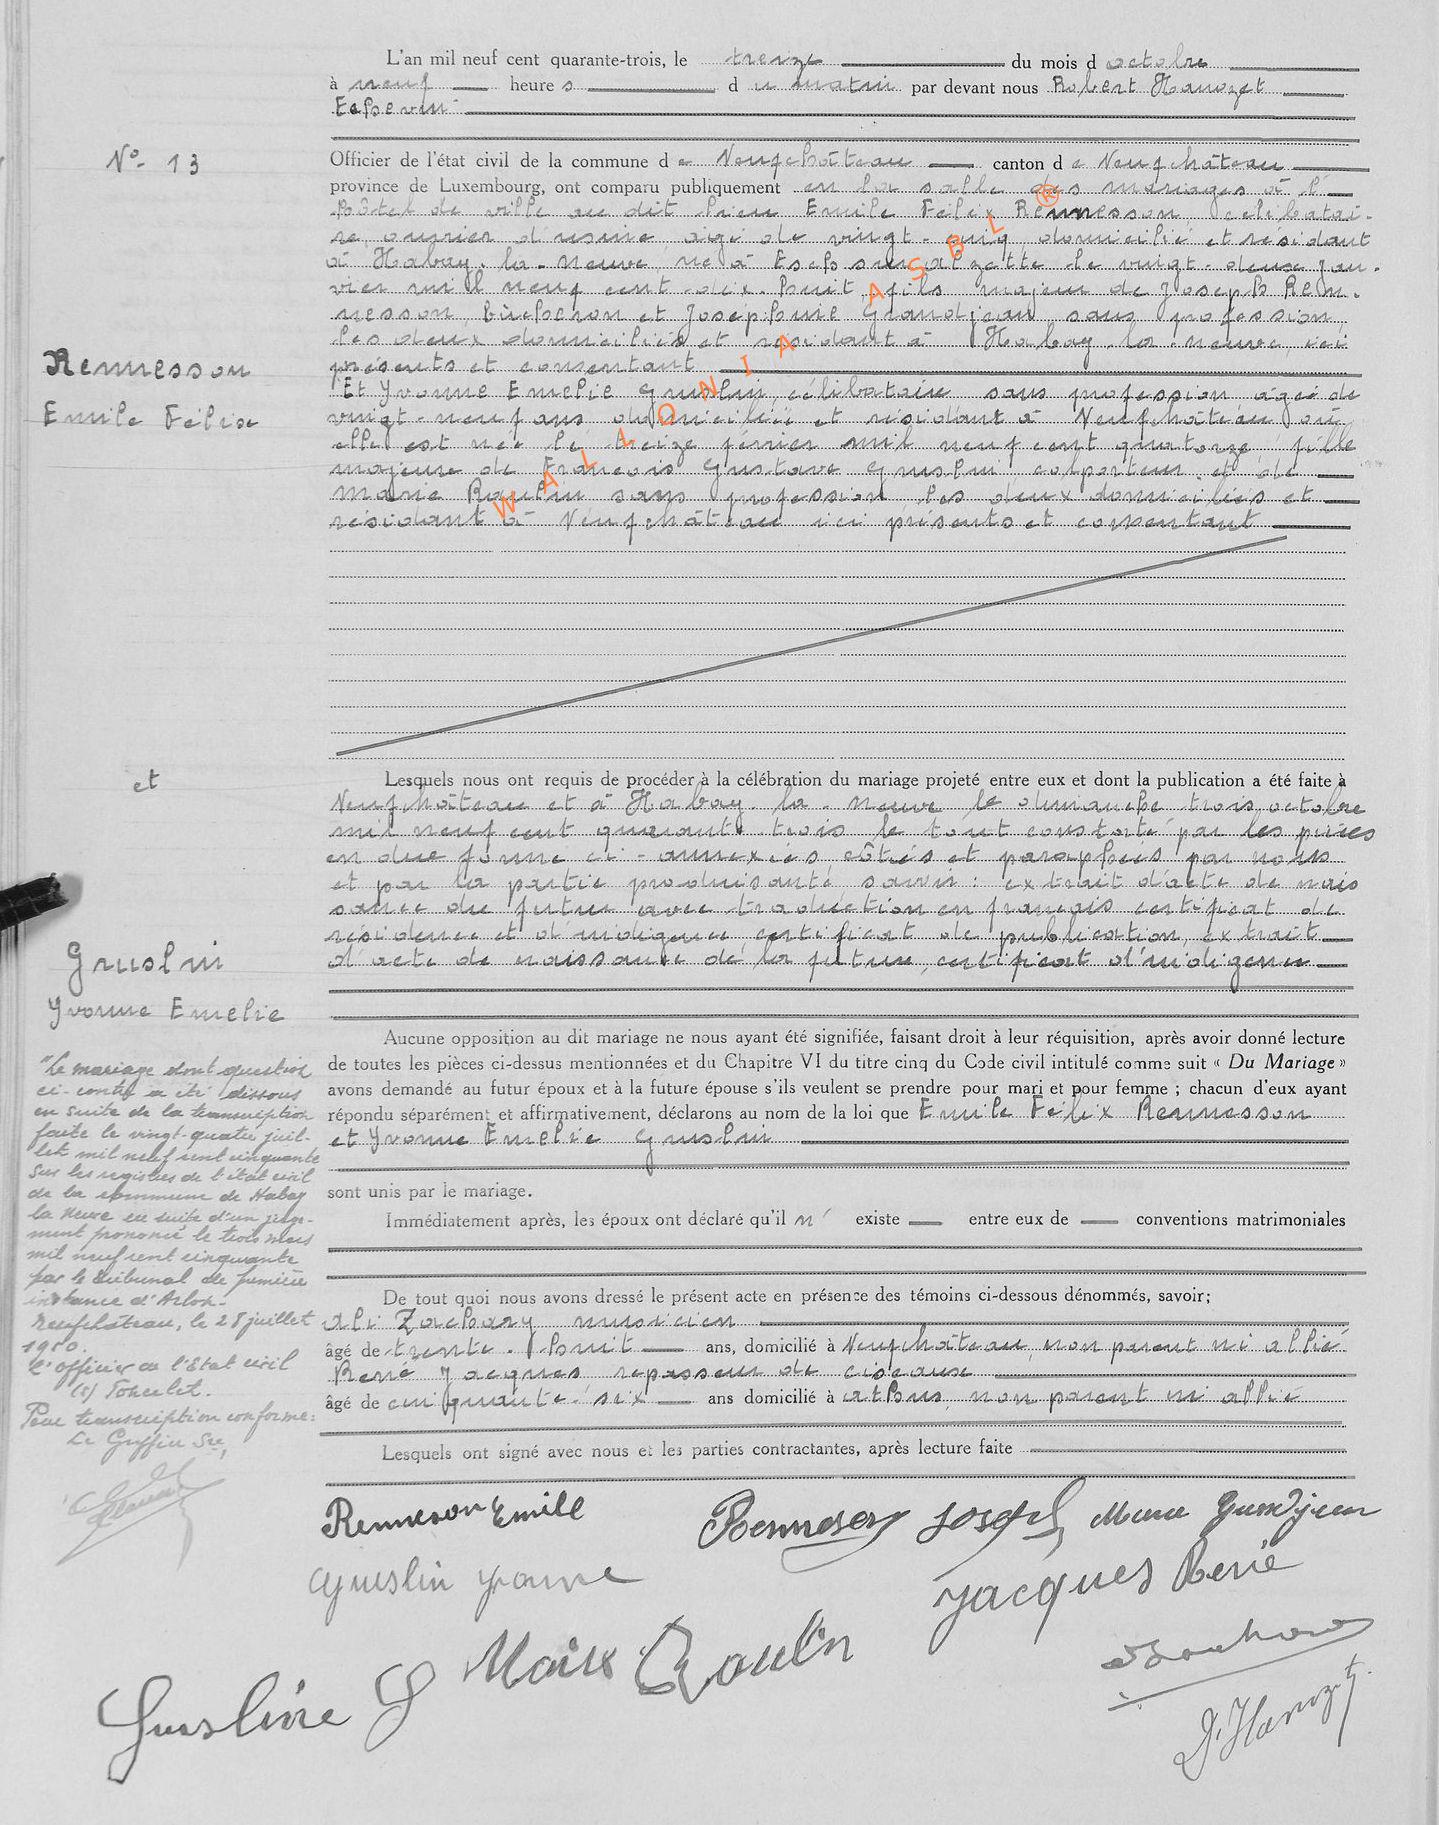 L'an mil neuf cent quarante-trois, le treize du mois d octobre
à neuf heure s d u matin par devant nous Robert Hanozet
Echevin
N° 13
Officier de l'état civil de la commune d e Neufchâteau canton d e Neufchâteau
province de Luxembourg, ont comparu publiquement en la salle des mariages à l'
hôtel de ville au dit lieu Emile Félix Rennesson célibatai-
re, ouvrier d'usine, âgé de vingt-cinq, domicilié et résidant
à Habay-la-Neuve, né à Esch sur Alzette le vingt-deux jan-
vier mil neuf cent dix-huit, fils majeur de Joseph Ren-
nesson, bûcheron et Joséphine Grandjean sans profession,
les deux domiciliés et résidant à Habay-la-Neuve, ici
présents et consentant
Rennesson
Emile Félix
Et Yvonne Emelie Gruslin, célibataire sans profession âgée de
vingt-neuf ans domiciliée et résidant à Neufchâteau où
elle est née le treize février mil neuf cent quatorze, fille
majeure de François Gustave Gruslin colporteur et de
Marie Raulin sans profession les deux domiciliés et
résidant à Neufchâteau ici présents et consentant
WALLONIA ASBL ®
et
Lesquels nous ont requis de procéder à la célébration du mariage projeté entre eux et dont la publication a été faite à
Neufchâteau et à Habay-la-Neuve le dimanche trois octobre
mil neuf cent quarante-trois le tout constaté par les pièces
en due forme ci-annexées côtés et paraphées par nous
et par la partie produisante savoir : extrait d'acte de nais
sance du futur avec traduction en français certificat de
résidence et d'indigence, certificat de publication, extrait
d'acte de naissance de la future, certificat d'indigence
Gruslin
Yvonne Emelie
Aucune opposition au dit mariage ne nous ayant été signifiée, faisant droit à leur réquisition, après avoir donné lecture
de toutes les pièces ci-dessus mentionnées et du Chapitre VI du titre cinq du Code civil intitulé comme suit « Du Mariage »
avons demandé au futur époux et à la future épouse s'ils veulent se prendre pour mari et pour femme ; chacun d'eux ayant
répondu séparément et affirmativement, déclarons au nom de la loi que Emile Félix Rennesson
et Yvonne Emelie Gruslin
sont unis par le mariage.
Immédiatement après, les époux ont déclaré qu'il n' existe entre eux de conventions matrimoniales
"Le mariage dont question
ci-contre a été dissous
en suite de la transcription
faite le vingt-quatre juil-
let mil neuf cent cinquante
sur les registres de l'état civil
de la commune de Habay
la Neuve en suite d'un juge-
ment prononcé le trois mars
mil neuf cent cinquante
par le tribunal de première
instance d'Arlon-
Neufchâteau, le 28 juillet
1950.
L'officier de l'Etat civil
(s)
Pour transcription conforme:
Le Greffier
De tout quoi nous avons dressé le présent acte en présence des témoins ci-dessous dénommés, savoir;
Ali Zachary musicien
âgé de trente-huit ans, domicilié à Neufchâteau, non parent ni allié
René Jacques repasseur de ciseaux
âgé de cinquante-six ans domicilié à Athus, non parent ni allié
Lesquels ont signé avec nous et les parties contractantes, après lecture faite
Renneson Emile Renneson Joseph Grandjean
Gruslin Yvonne Jacques René
Raulin
Gusline G
Hanozet